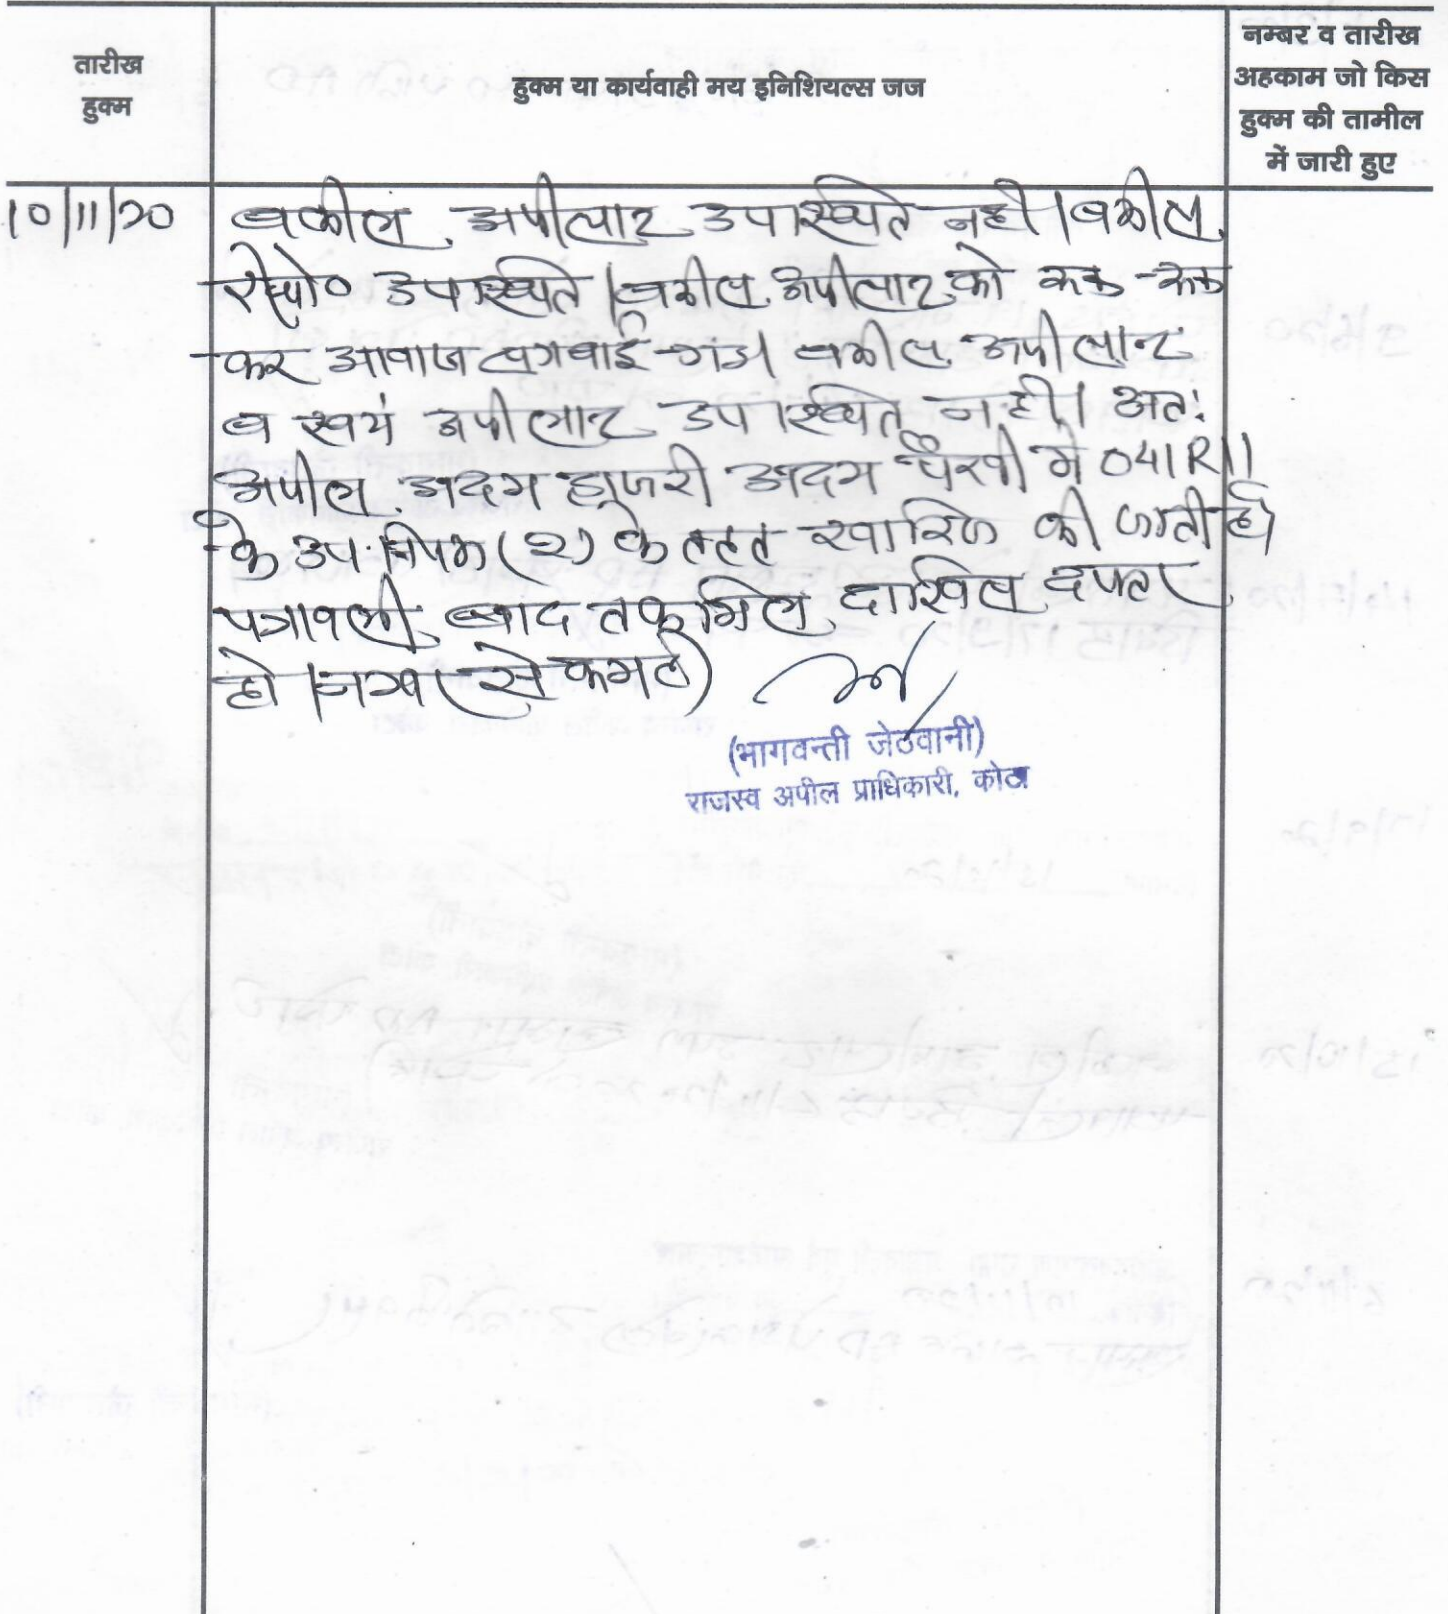 तारीख
हुक्म
हुक्म या कार्यवाही मय इनिशियल्स जज
नम्बर व तारीख
अहकाम जो किस
हुक्म की तामील
में जारी हुए
10/11/20 वकील अपीलांट उपस्थित नही। वकील
रेस्पो० उपस्थित। वकील अपीलांट को रूक-रूक
कर आवाज लगवाई गई। वकील अपीलान्ट
व स्वयं अपीलांट उपस्थित नही। अतः
अपील अदम हाजरी अदम पैरवी मे O41R11
के उप नियम (2) के तहत खारिज की जाती है।
पत्रावली बाद तकमिल दाखिल दफ्तर
हो। नम्बर से कम हो
(भागवन्ती जेठवानी)
राजस्व अपील प्राधिकारी, कोटा